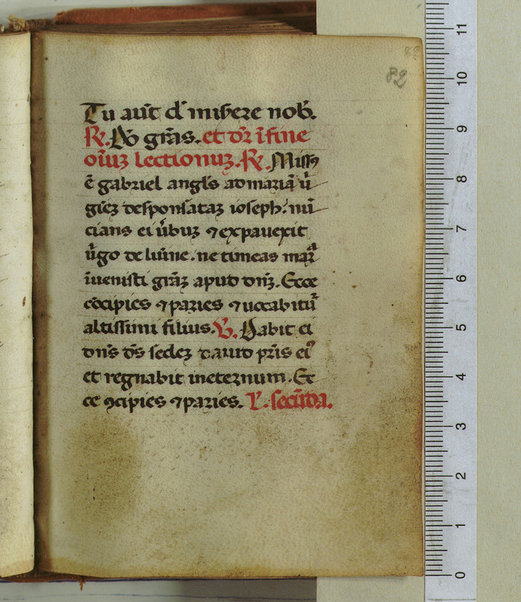 82
Tu aut̃ dñe miserere nob̃.
℟. Deo grãs. et dr̃ ĩ fine
oĩuz lectionuz. ℟. Missus
ẽ gabriel angl̃s ad mariã ṽi
ginẽz desponsataz ioseph. nũ
cians ei ṽbuz ⁊ expauexit
ṽgo de lumĩe. ne timeas mar̃
ĩuenisti grãz apud dñz. Ecce
cõcipies ⁊ paries ⁊ uocabitur̃
altissimi filius. ℣. Dabit ei
dñs ds̃ sedez dauid pr̃is ei⁹
et regnabit in eternum. Ec
ce ꝯcipies ⁊ paries. L. secũda.
0 1 2 3 4 5 6 7 8 9 10 11